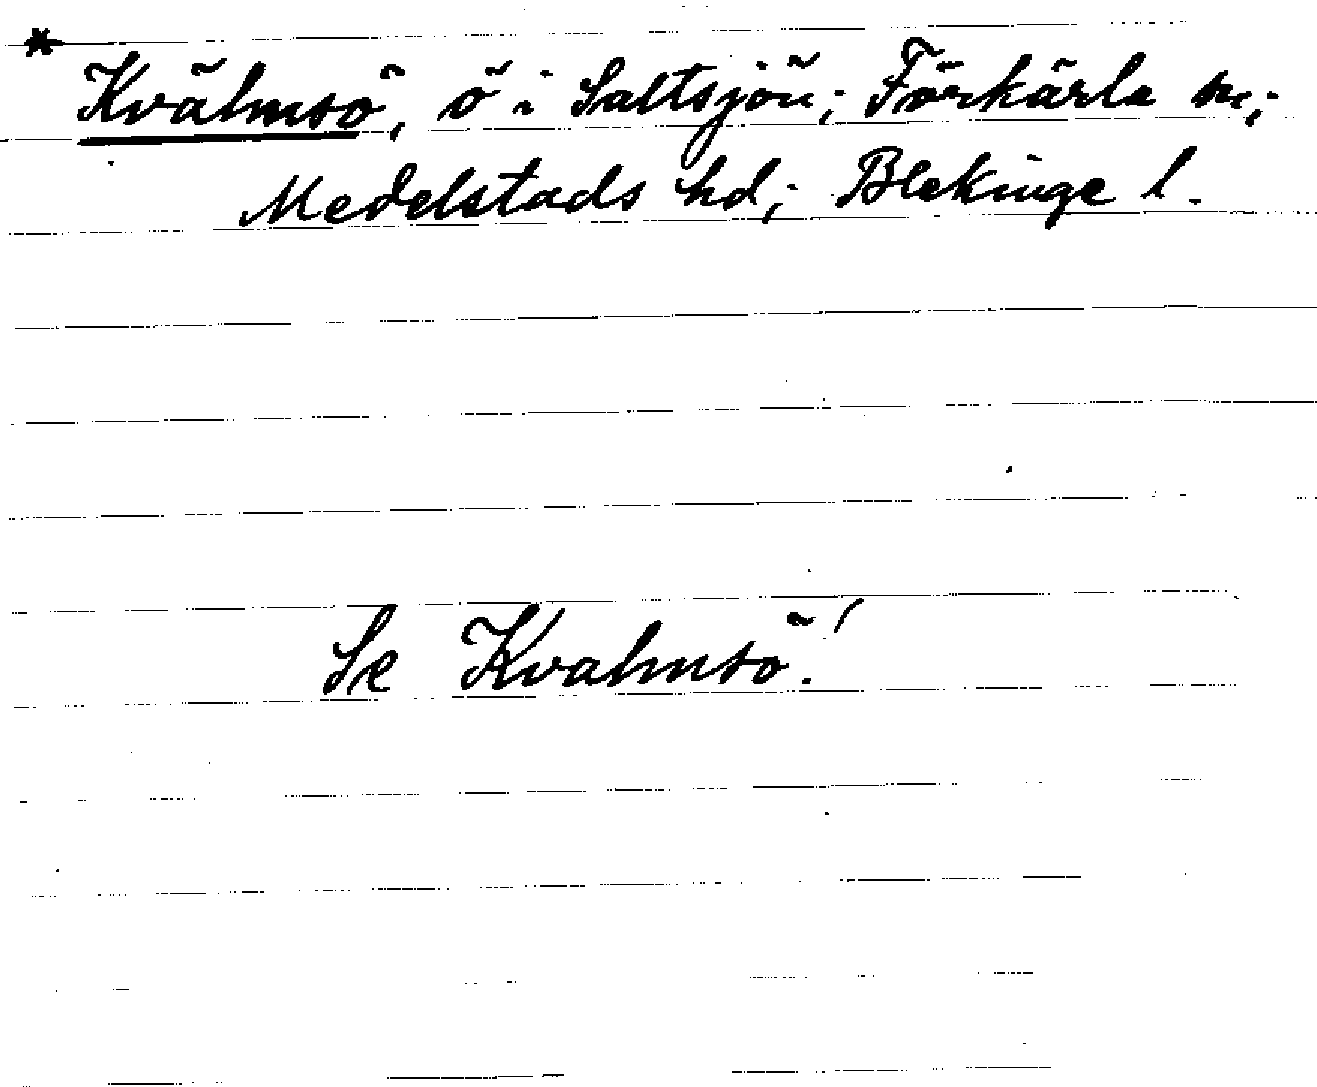 * Kvälmsö, ö i Saltsjön; Förkärla sn;
Medelstads hd; Blekinge l.
Se Kvalmsö!